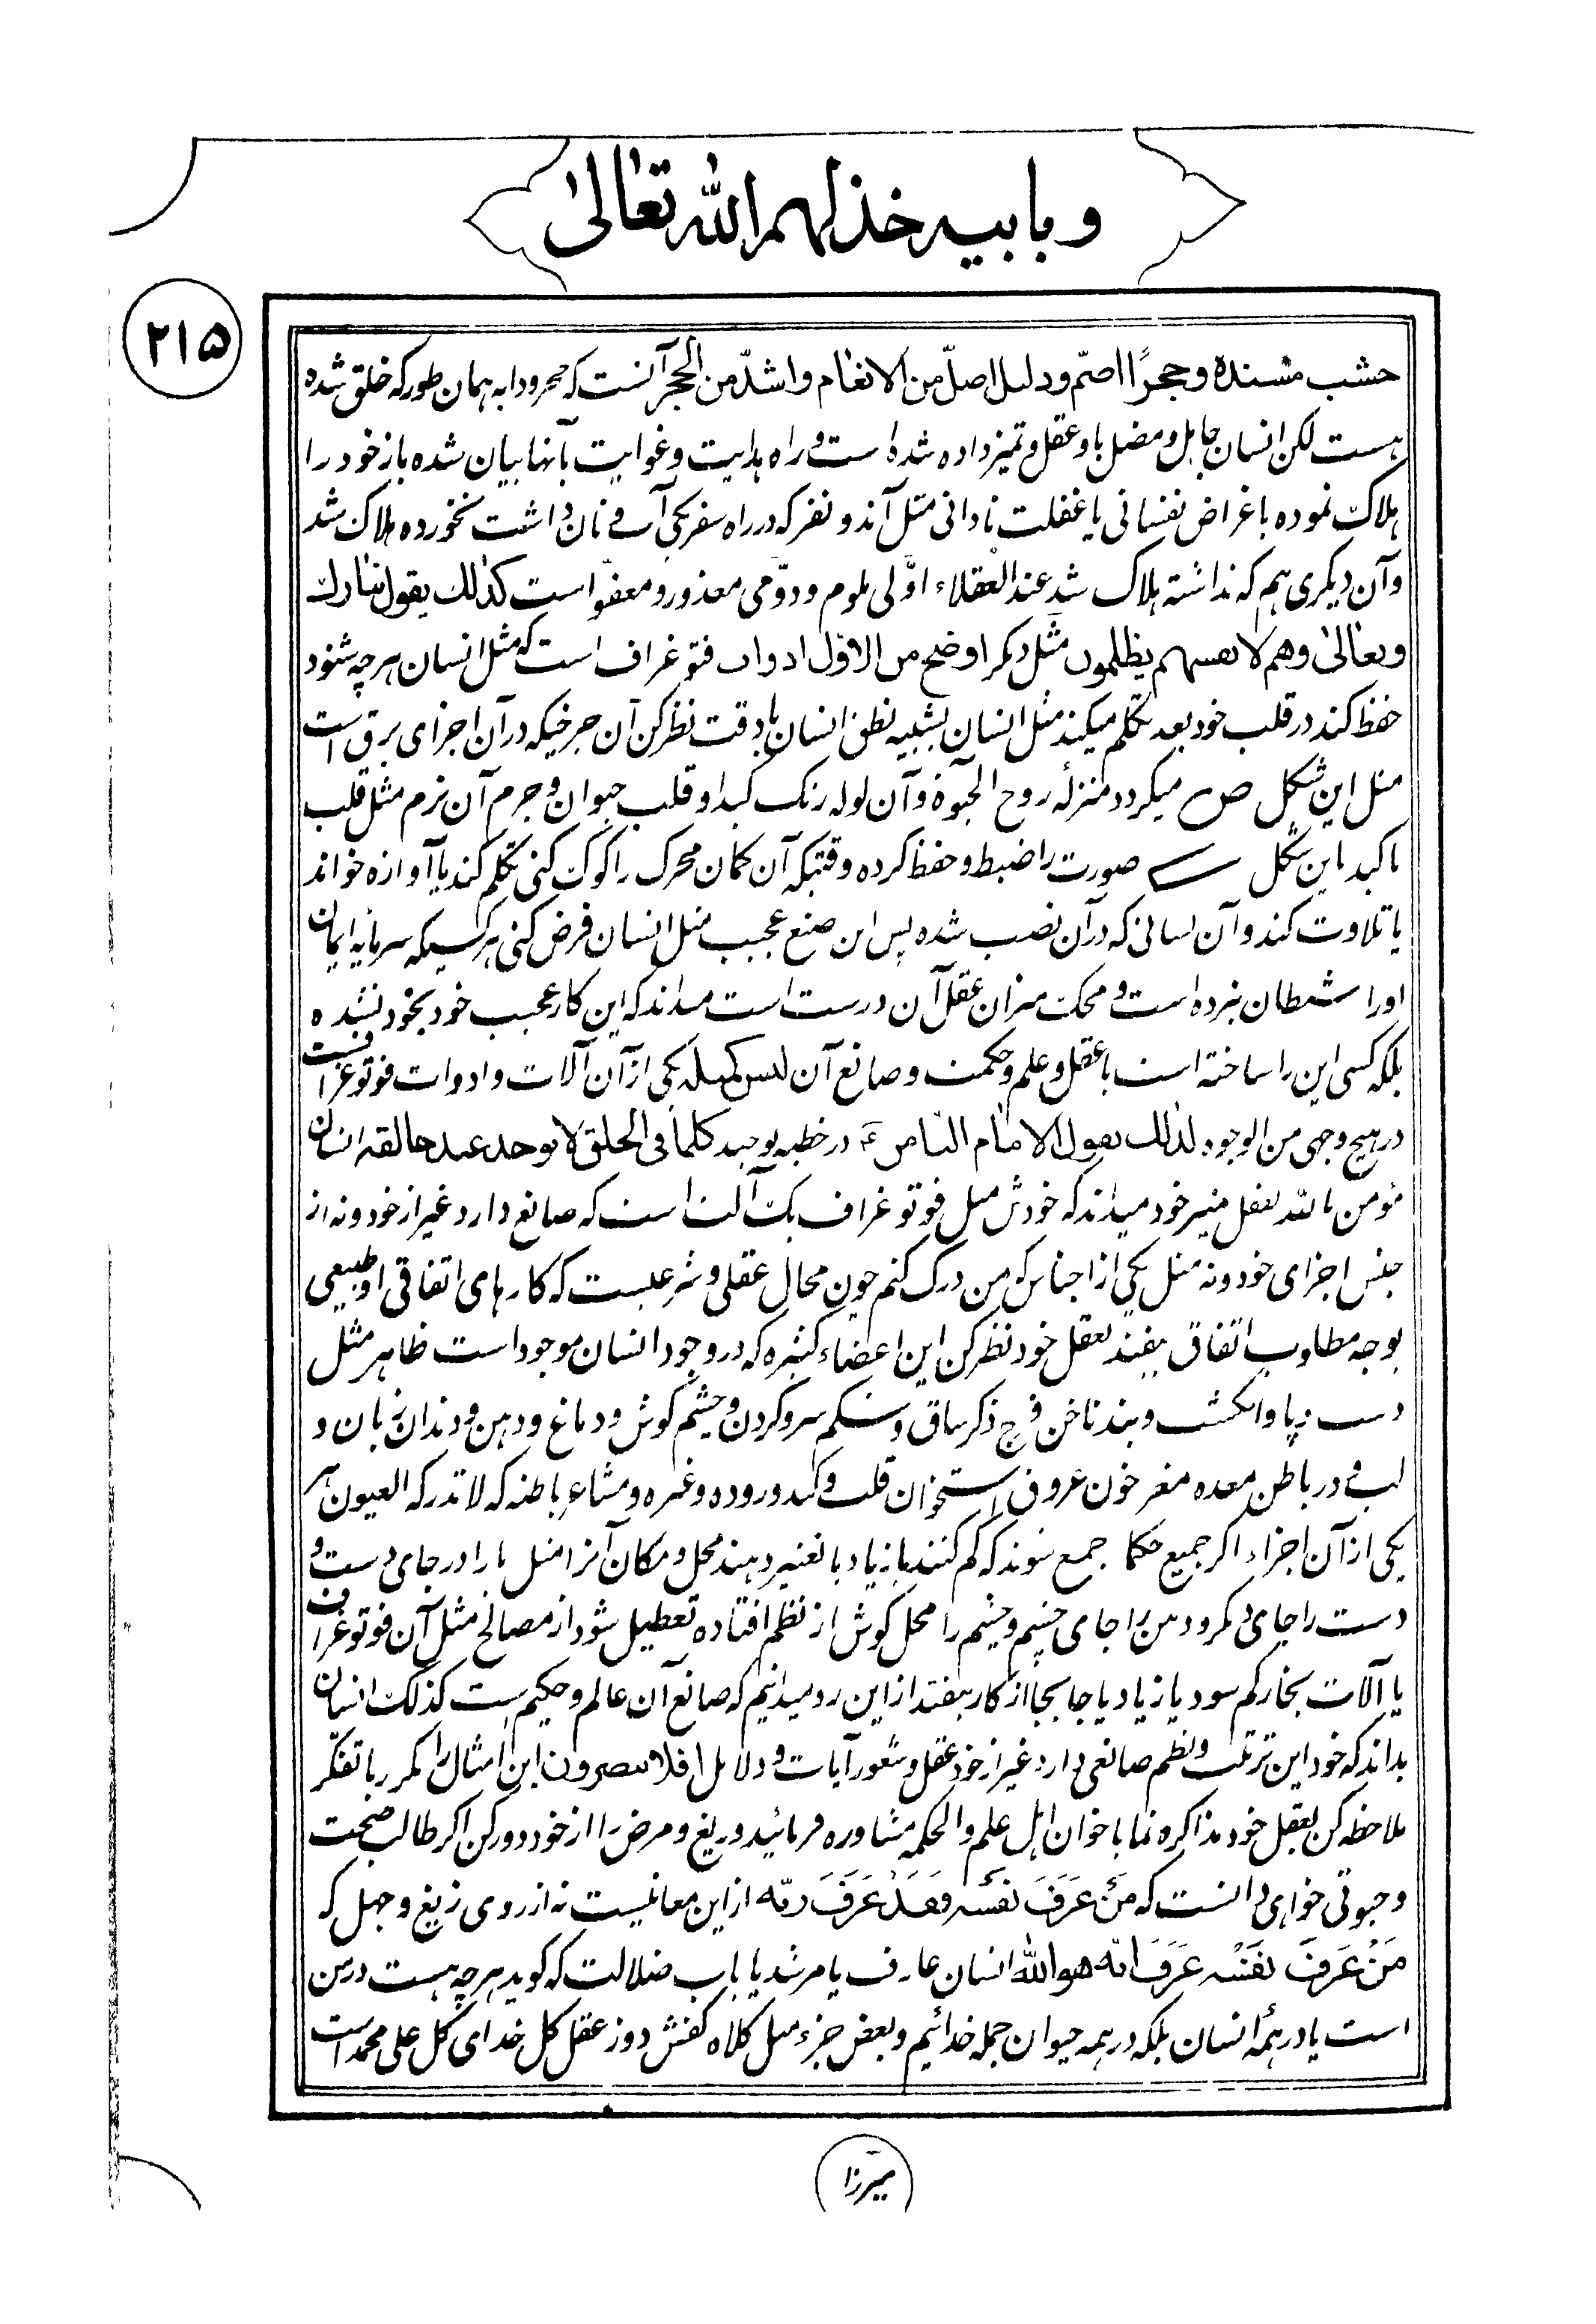 وبابیه خذلهم الله تعالی
۲۱۵
خشب مسنده وحجرًا اصمّ ودلیل اضلّ من الانعام واشدّ من الحجر آنست که حجر ودابه همان طور که خلق شده
هست لکن انسان جاهل ومضل باو عقل وتمیز داده شده است و راه هدایت وغوایت بآنها بیان شده باز خود را
هلاک نموده باغراض نفسانی یا غفلت نادانی مثل آندو نفر که در راه سفر یکی آب و نان داشت نخورده هلاک شد
وآن دیکری هم که نداشته هلاک شد عند العقلاء اوّلی ملوم ودوّمی معذور ومعفوّ است کذلك یقول تبارك
وتعالی وهم لانفسهم یظلمون مثل دیکر اوضح من الاول ادوات فتوغراف است که مثل انسان هرچه شنود
حفظ کند در قلب خود بعد تکلم میکند مثل انسان بشبیه نطق انسان بادقت نظر کن آن چرخیکه در آن اجزای برق است
مثل این شکل میکردد منزله روح الحیوة وآن لوله رنک کبد او قلب حیوان و جرم آن نرم مثل قلب
یا کبد این شکل صورت را ضبط وحفظ کرده وقتیکه آن کمان محرک را کوک کنی تکلم کند یا آوازه خواند
یا تلاوت کند وآن لسانی که در آن نصب شده پس این صنع عجیب مثل انسان فرض کنی هر کسیکه سرمایه ایمان
اورا شیطان نبرده است و محک میزان عقل آن درست است میداند که این کار عجیب خود بخود نشده
بلکه کسی این را ساخته است با عقل وعلم وحکمت وصانع آن لیس کمثله یکی از آن آلات وادوات فوتوغرافست
در هیچ وجهی من الوجوه لذلك یقول الامام الثامن ع در خطبه توحید کلما فی الخلق لا یوجد عند خالقه انسان
مؤمن بالله بعقل منیر خود میداند که خودش مثل فوتوغراف یک آلت است که صانع دارد غیر از خود ونه از
جنس اجزای خود ونه مثل یکی از اجناس که من درک کنم چون محال عقلی وشرعیست که کارهای اتفاقی او طبیعی
بوجه مطلوب اتفاق بیفتد بعقل خود نظر کن این اعضاء کثیره که در وجود انسان موجود است ظاهر مثل
دست وپا وانکشت وبند ناخن فرج ذکر ساق وشکم سر وکردن وچشم کوش ودماغ ودهن ودندان زبان و
لب و در باطن معده مغز خون عروق استخوان قلب و کبد وروده وغیره ومشاعر باطنه که لا تدرکه العیون هر
یکی از آن اجزاء اکر جمیع حکما جمع شوند که کم کنند یا زیاد یا تغییر دهند محل ومکان آنرا مثل پا را در جای دست و
دست را جای دیکر ودهن را جای چشم وچشم را محل کوش از نظم افتاده تعطیل شود از مصالح مثل آن فوتوغراف
یا آلات بخار کم شود یا زیاد یا جابجا از کار بیفتد از این رو میدانیم که صانع آن عالم وحکیم است کذلک انسان
بداند که خود این ترتیب ونظم صانعی دارد غیر از خود عقل وشعور آیات ودلایل افلا تبصرون این امثال را مکرر با تفکّر
ملاحظه کن بعقل خود مذاکره نما با خوان اهل علم والحکمه مشاوره فرمائید وزیغ ومرض را از خود دور کن اکر طالب صحّت
وحیوتی خواهی دانست که مَنْ عَرَفَ نَفسَه فَقَدْ عَرَفَ ربّه از این معانیست نه از روی زیغ وجهل که
مَنْ عَرَفَ نَفْسَه عَرَفَ انّه هو الله انسان عارف یا مرشد یا باب ضلالت که کوید هرچه هست در من
است یا در همهٔ انسان بلکه در همه حیوان جمله خدائیم وبعض جزء مثل کلاه کفش دوز عقل کل خدای کل علی محمد است
میرزا